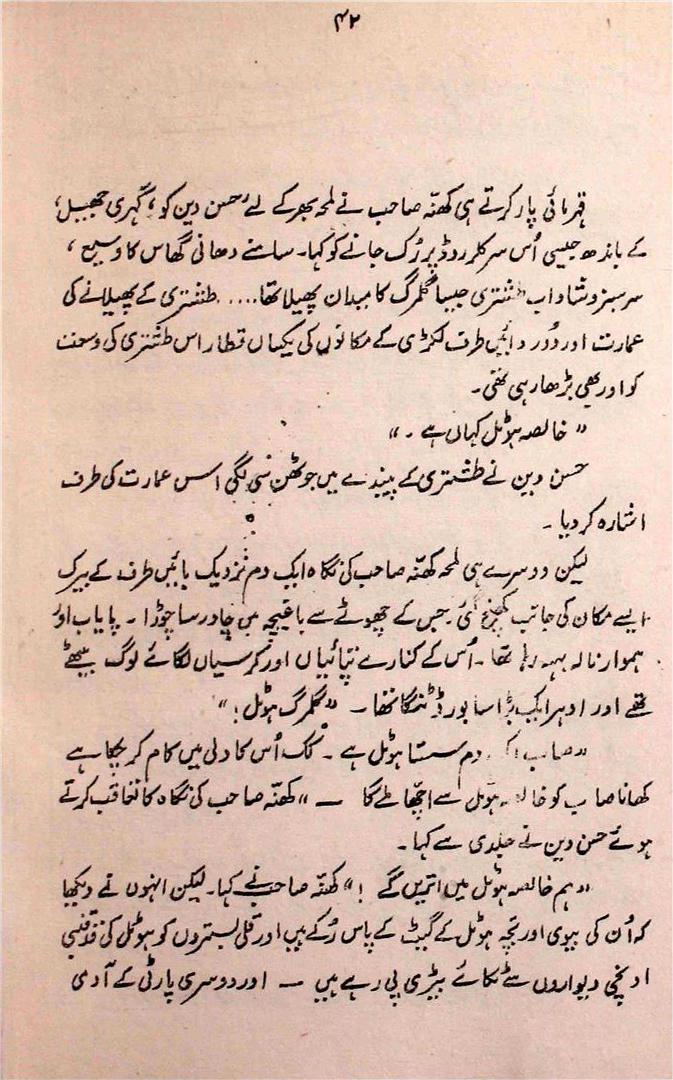 ۴۲
قہرمائی پار کرتے ہی کھنّہ صاحب نے لمحہ بھر کے لئے حسن دین کو، گہری جھیل،
کے باندھ جیسی اُس سرکلر روڈ پر رُک جانے کو کہا۔ سامنے دھانی گھاس کا وسیع،
سرسبز و شاداب طشتری جیسا گلمرگ کا میدان پھیلا تھا.... طشتری کے پھیلانے کی
عمارت اور دُور دائیں طرف لکڑی کے مکانوں کی یکساں قطار اس طشتری کی وسعت
کو اور بھی بڑھا رہی تھی۔
”خالصہ ہوٹل کہاں ہے۔“
حسن دین نے طشتری کے پیندے میں جو ٹھن سی لگی اسس عمارت کی طرف
اشارہ کر دیا۔
لیکن دوسرے ہی لمحہ کھنّہ صاحب کی نگاہ ایک دم نزدیک بائیں طرف کے بیرک
ایسے مکان کی جانب گئی جس کے چھوٹے سے باغیچہ میں چادر سا چوڑا۔ پایاب اور
ہموار نالہ بہہ رہا تھا۔ اُس کے کنارے تپائیاں اور کرسیاں لگائے لوگ بیٹھے
تھے اور ادہر ایک بڑا سا بورڈ ٹنگا تھا۔ ”گلمرگ ہوٹل!“
”صاب! دم سستا ہوٹل ہے۔ کک اُس کا دلی میں کام کر چکا ہے
کھانا صاب کو خالصہ ہوٹل سے اچھا ملے گا —“ کھنّہ صاحب کی نگاہ کا تعاقب کرتے
ہوئے حسن دین نے جلدی سے کہا۔
”ہم خالصہ ہوٹل میں اتریں گے!“ کھنّہ صاحب نے کہا۔ لیکن انہوں نے دیکھا
کہ اُن کی بیوی اور بچہ ہوٹل کے گیٹ کے پاس رُکے ہیں اور قلی بستروں کو ہوٹل کی
اونچی دیواروں سے ٹکائے بیڑی پی رہے ہیں — اور دوسری پارٹی کے آدمی